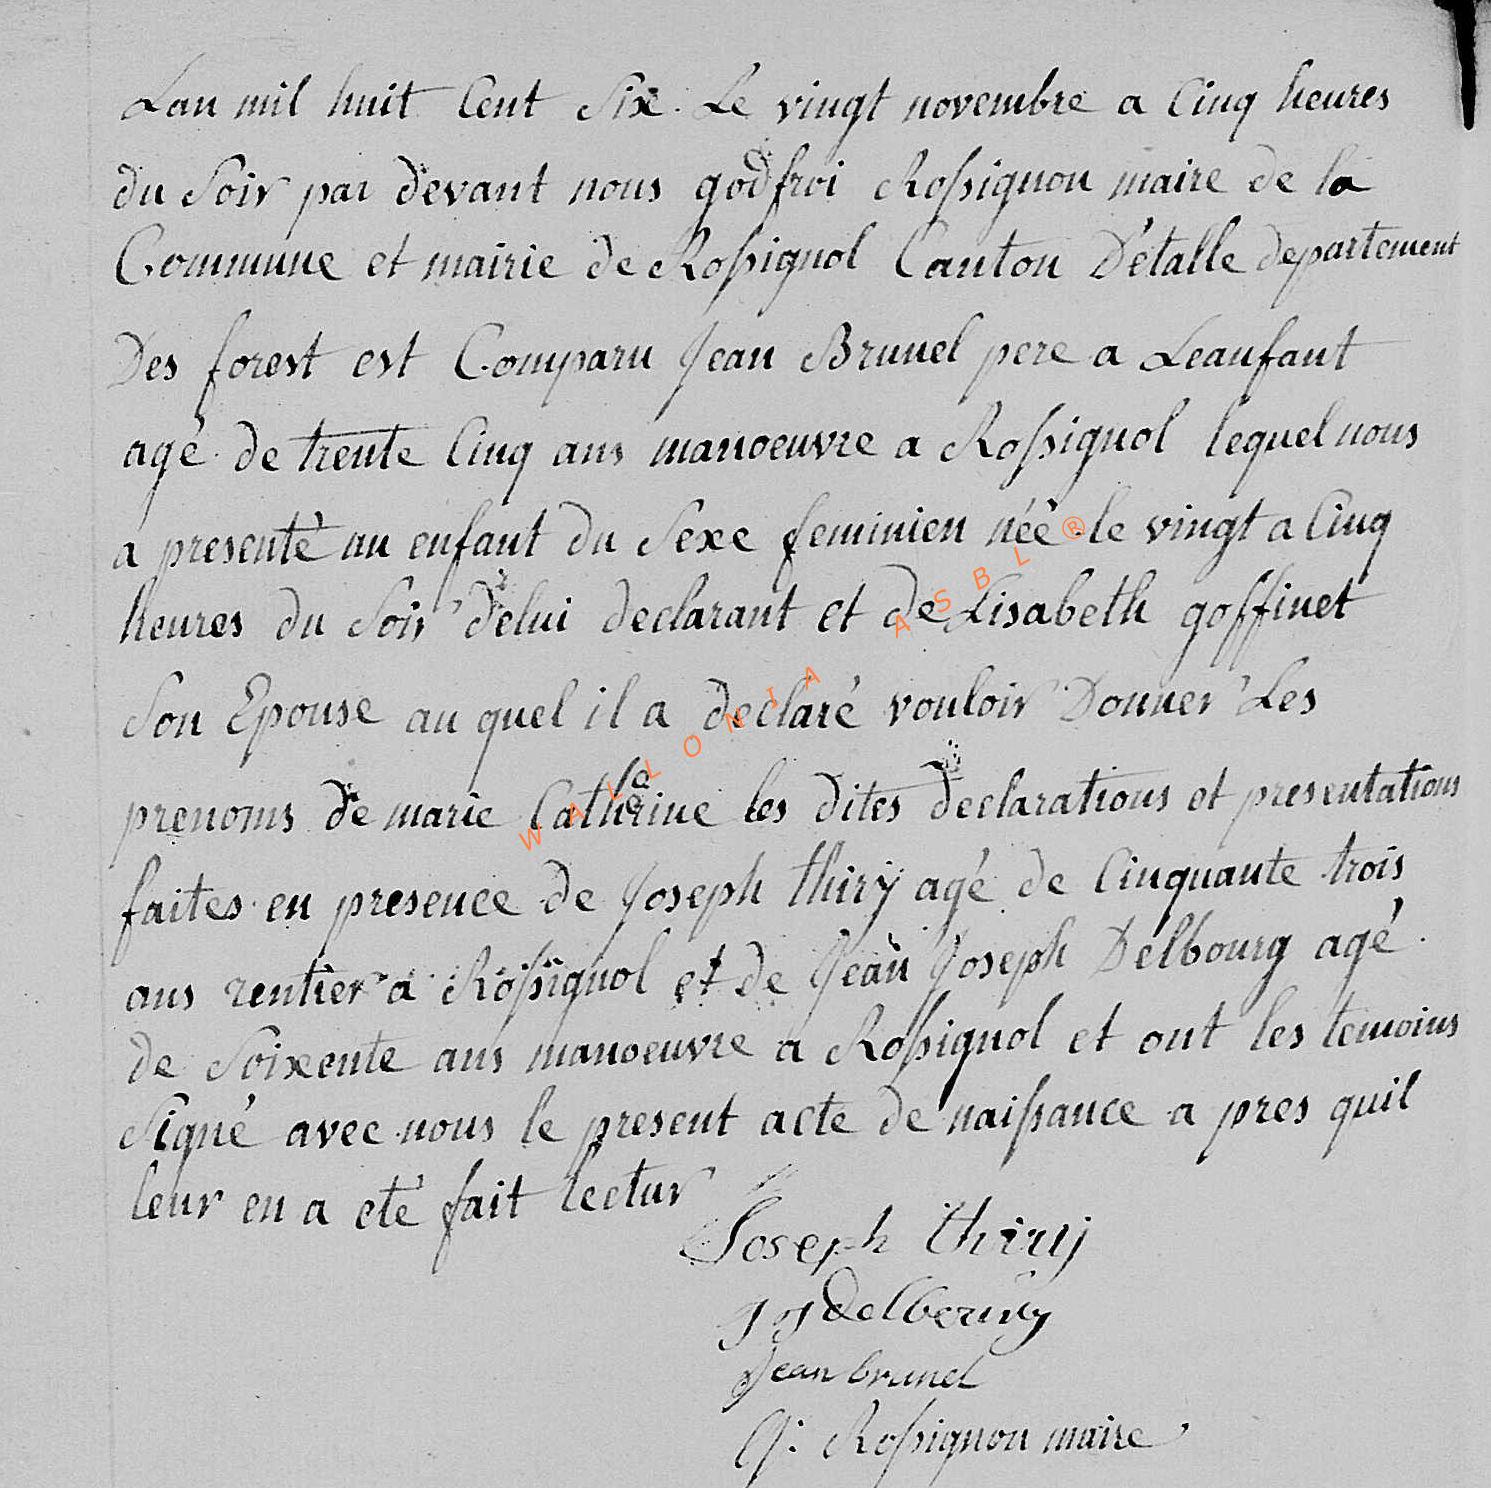 Lan mil huit Cent Six. Le vingt novembre a Cinq heures
du Soir par devant nous godfroi Rossignon maire de la
Commune et mairie de Rossignol Canton D'étalle departement
Des forest est Comparu Jean Brunel pere a Leanfant
agé de trente Cinq ans manoeuvre a Rossignol lequel nous
a presenté un enfant du Sexe feminien néé le vingt a Cinq
heures du Soir delui declarant et de Lisabeth goffinet
Son Epouse au quel il a declaré vouloir Donner Les
prenoms de marie Catherine les dites declarations et presentations
faites en presence de Joseph thiry agé de Cinquante trois
ans rentier a Rossignol et de Jean Joseph Delbourg agé
de Soixente ans manoeuvre a Rossignol et ont les temoins
Signé avec nous le present acte de naissance a pres quil
leur en a eté fait lectur
Joseph thiry
Jean brunel
G: Rossignon maire
WALLONIA ASBL ®